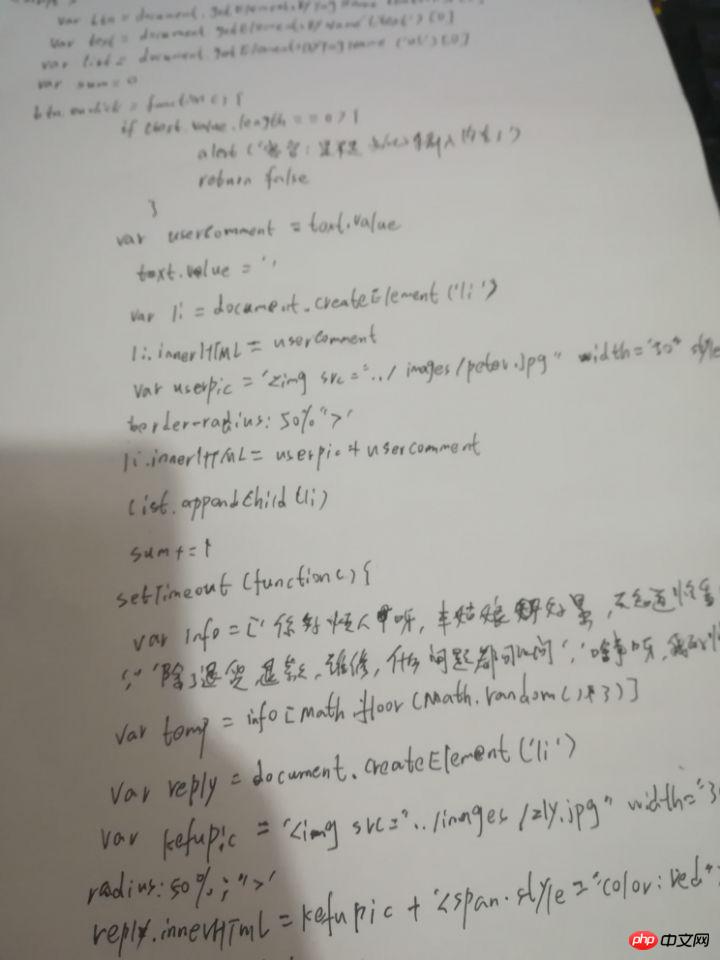 var btn = document.getElementsByTagName
var text = document.getElementsByName('text')[0]
var list = document.getElementsByTagName('ul')[0]
var sum=0
btn.onclick = function(){
if (text.value.length ===0){
alert('
return false
}
var usercomment = text.value
text.value = ''
var li = document.createElement('li')
li.innerHTML = usercomment
var userpic = '<img src="../images/peter.jpg" width="30" style
border-radius: 50%">'
li.innerHTML = userpic + usercomment
list.appendChild(li)
sum+=1
setTimeout(function(){
var info = ['你好烦人呀, 本姑娘
','除了退货退款, 维修, 什么问题都可以问','啥事呀,
var temp = info[Math.floor(Math.random()*3)]
var reply = document.createElement('li')
var kefupic = '<img src="../images/zly.jpg" width="3
radius:50%;">'
reply.innerHTML = kefupic + '<span.style="color:red"
php 中文网